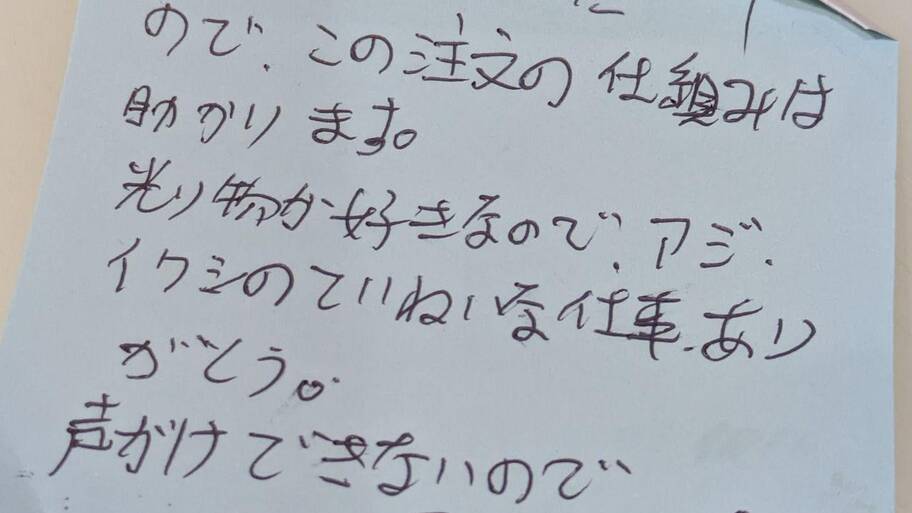 ので、この注文の仕組みは
助かります。
光り物が好きなので、アジ、
イワシのていねいな仕事、あり
がとう。
声がけできないので